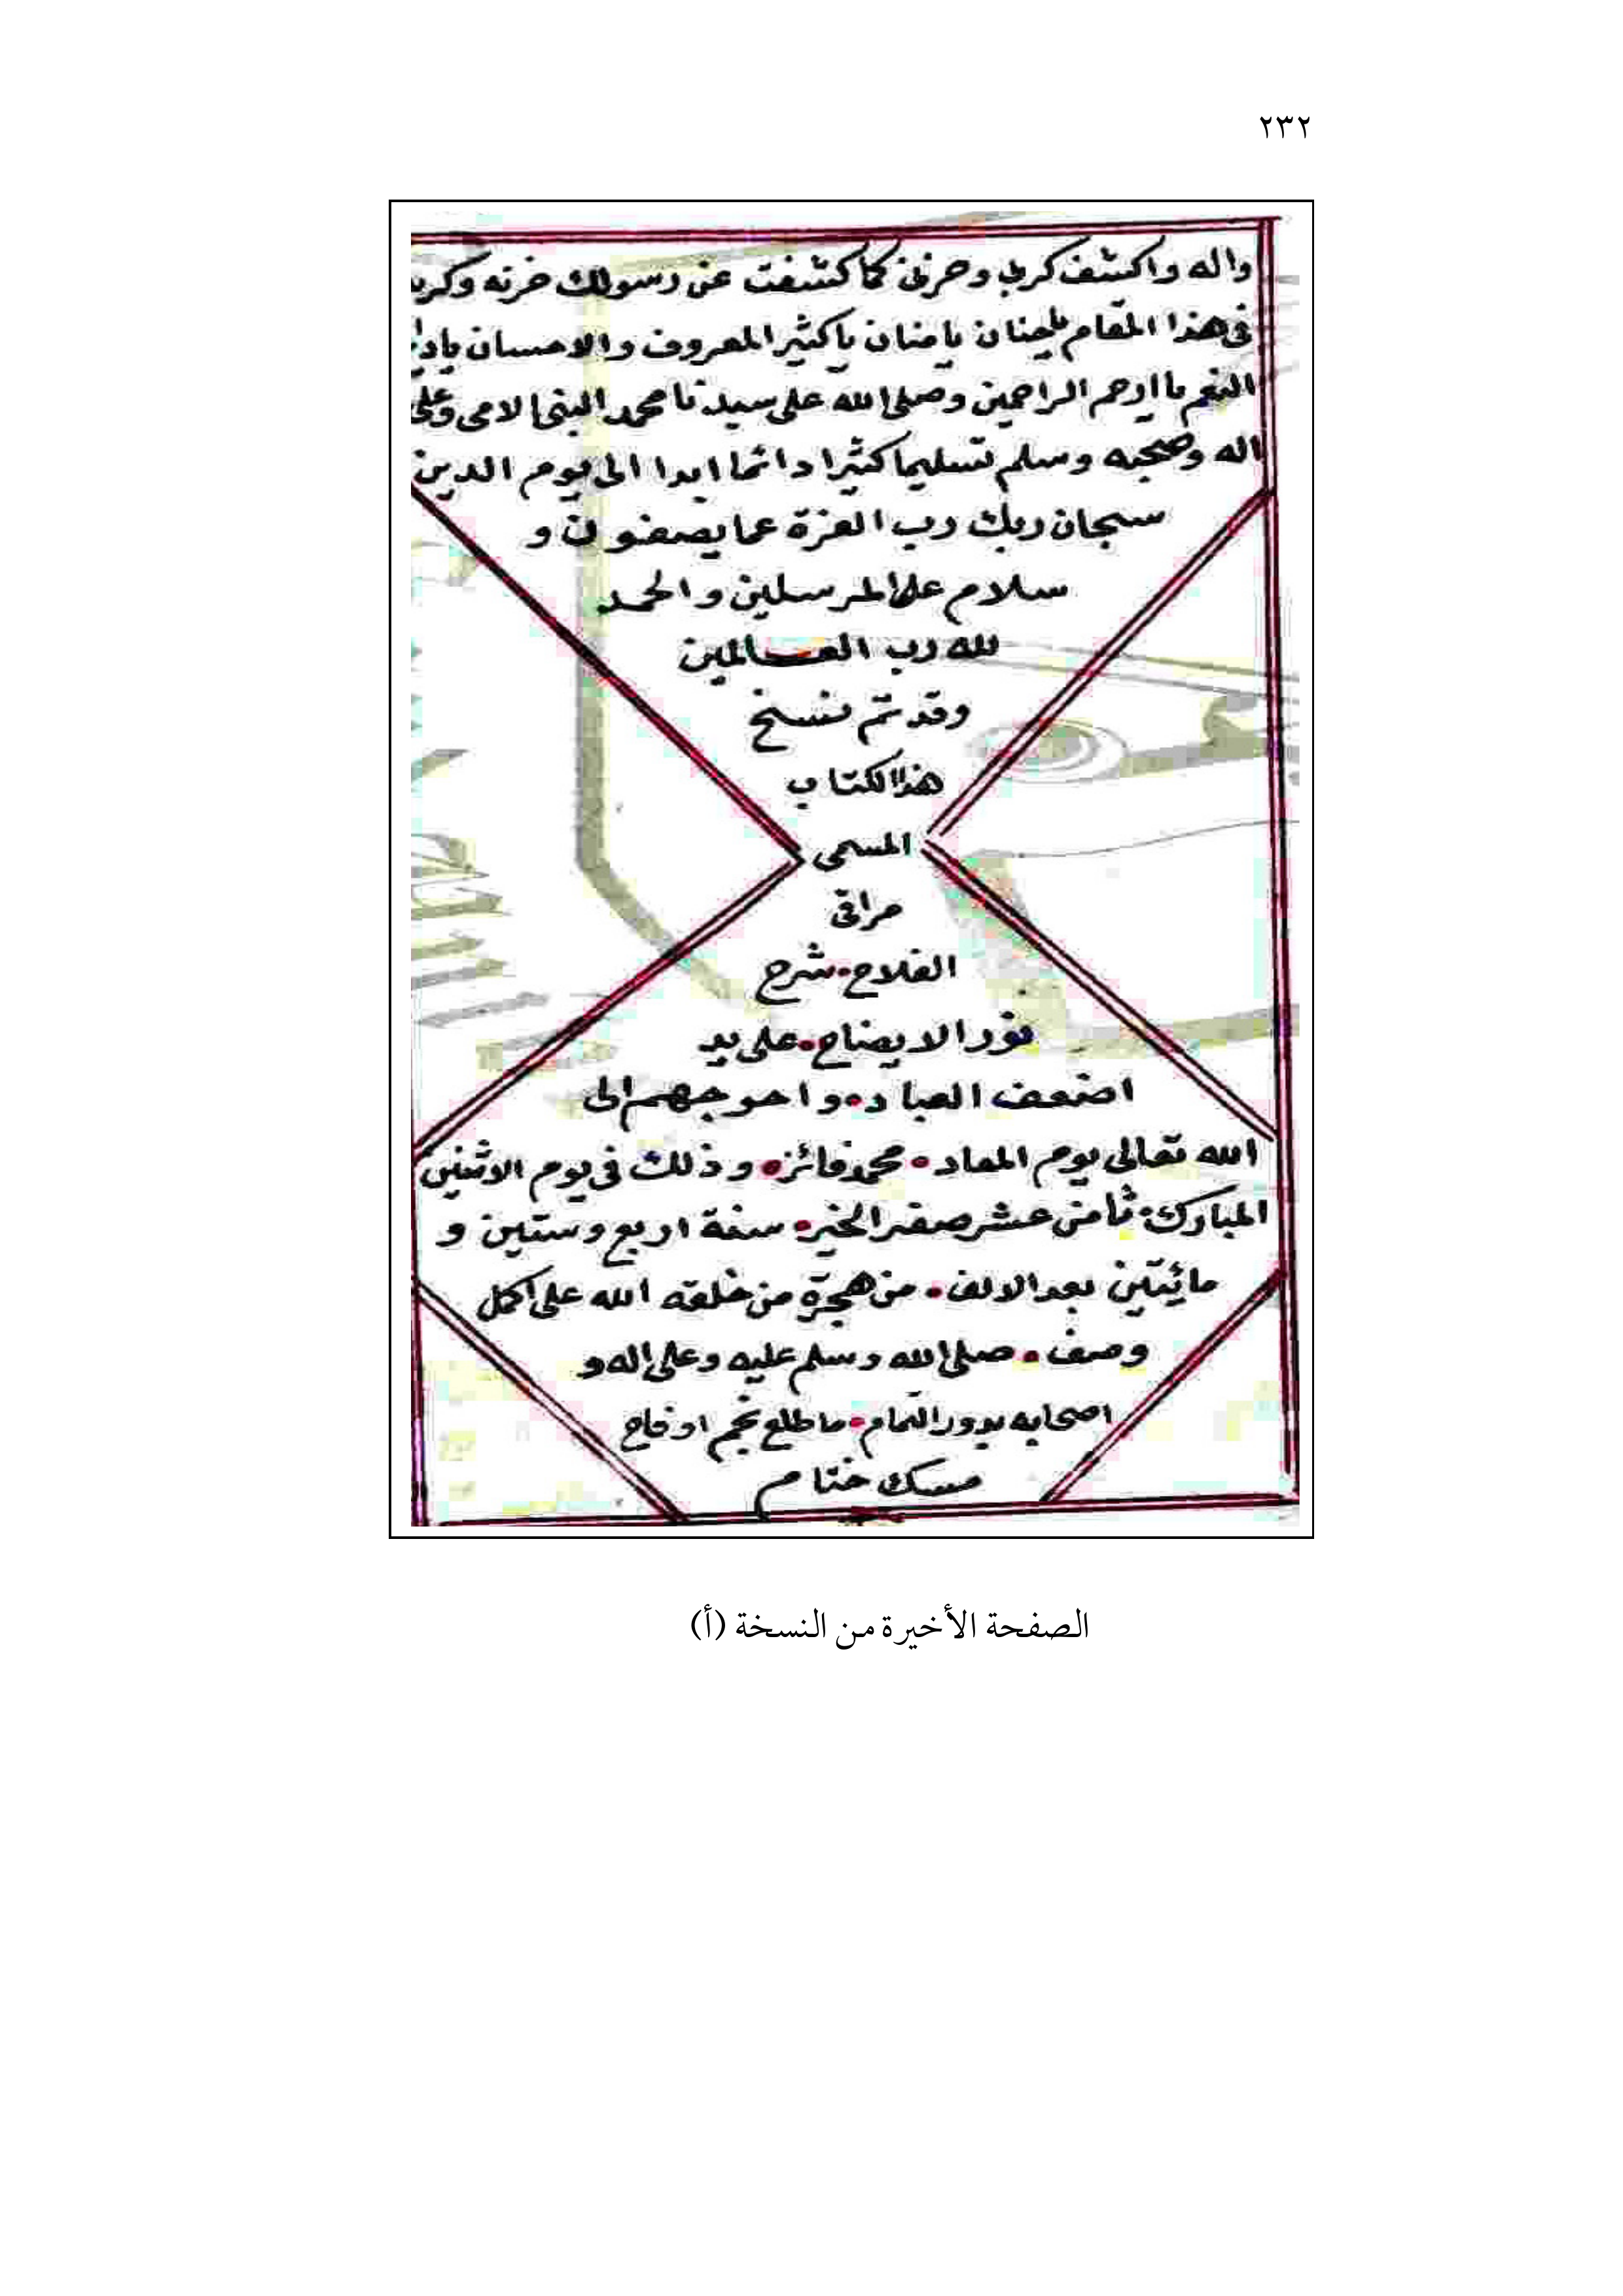 ٢٣٢
واله واكشف كربي وحزني كما كشفت عن رسولك حزنه وكربه
في هذا المقام ياحنان يا منان ياكثير المعروف والاحسان يادائم
النعم يا ارحم الراحمين وصلى الله على سيدنا محمد النبي الامي وعلى
اله وصحبه وسلم تسليما كثيرا دائما ابدا الى يوم الدين
سبحان ربك رب العزة عما يصفون و
سلام على المرسلين والحمد
لله رب العالمين
وقد تم نسخ
هذا الكتاب
المسمى
مراقي
الفلاح • شرح
نور الايضاح • على يد
اضعف العباد • واحوجهم الى
الله تعالى يوم المعاد • محمد فائز • وذلك في يوم الاثنين
المبارك • ثامن عشر صفر الخير • سنة اربع وستين و
مائيتين بعد الالف • من هجرة من خلقه الله على اكمل
وصف • صلى الله وسلم عليه وعلى اله و
اصحابه بدور التمام • ما طلع نجم او فاح
مسك ختام
الصفحة الأخيرة من النسخة (أ)